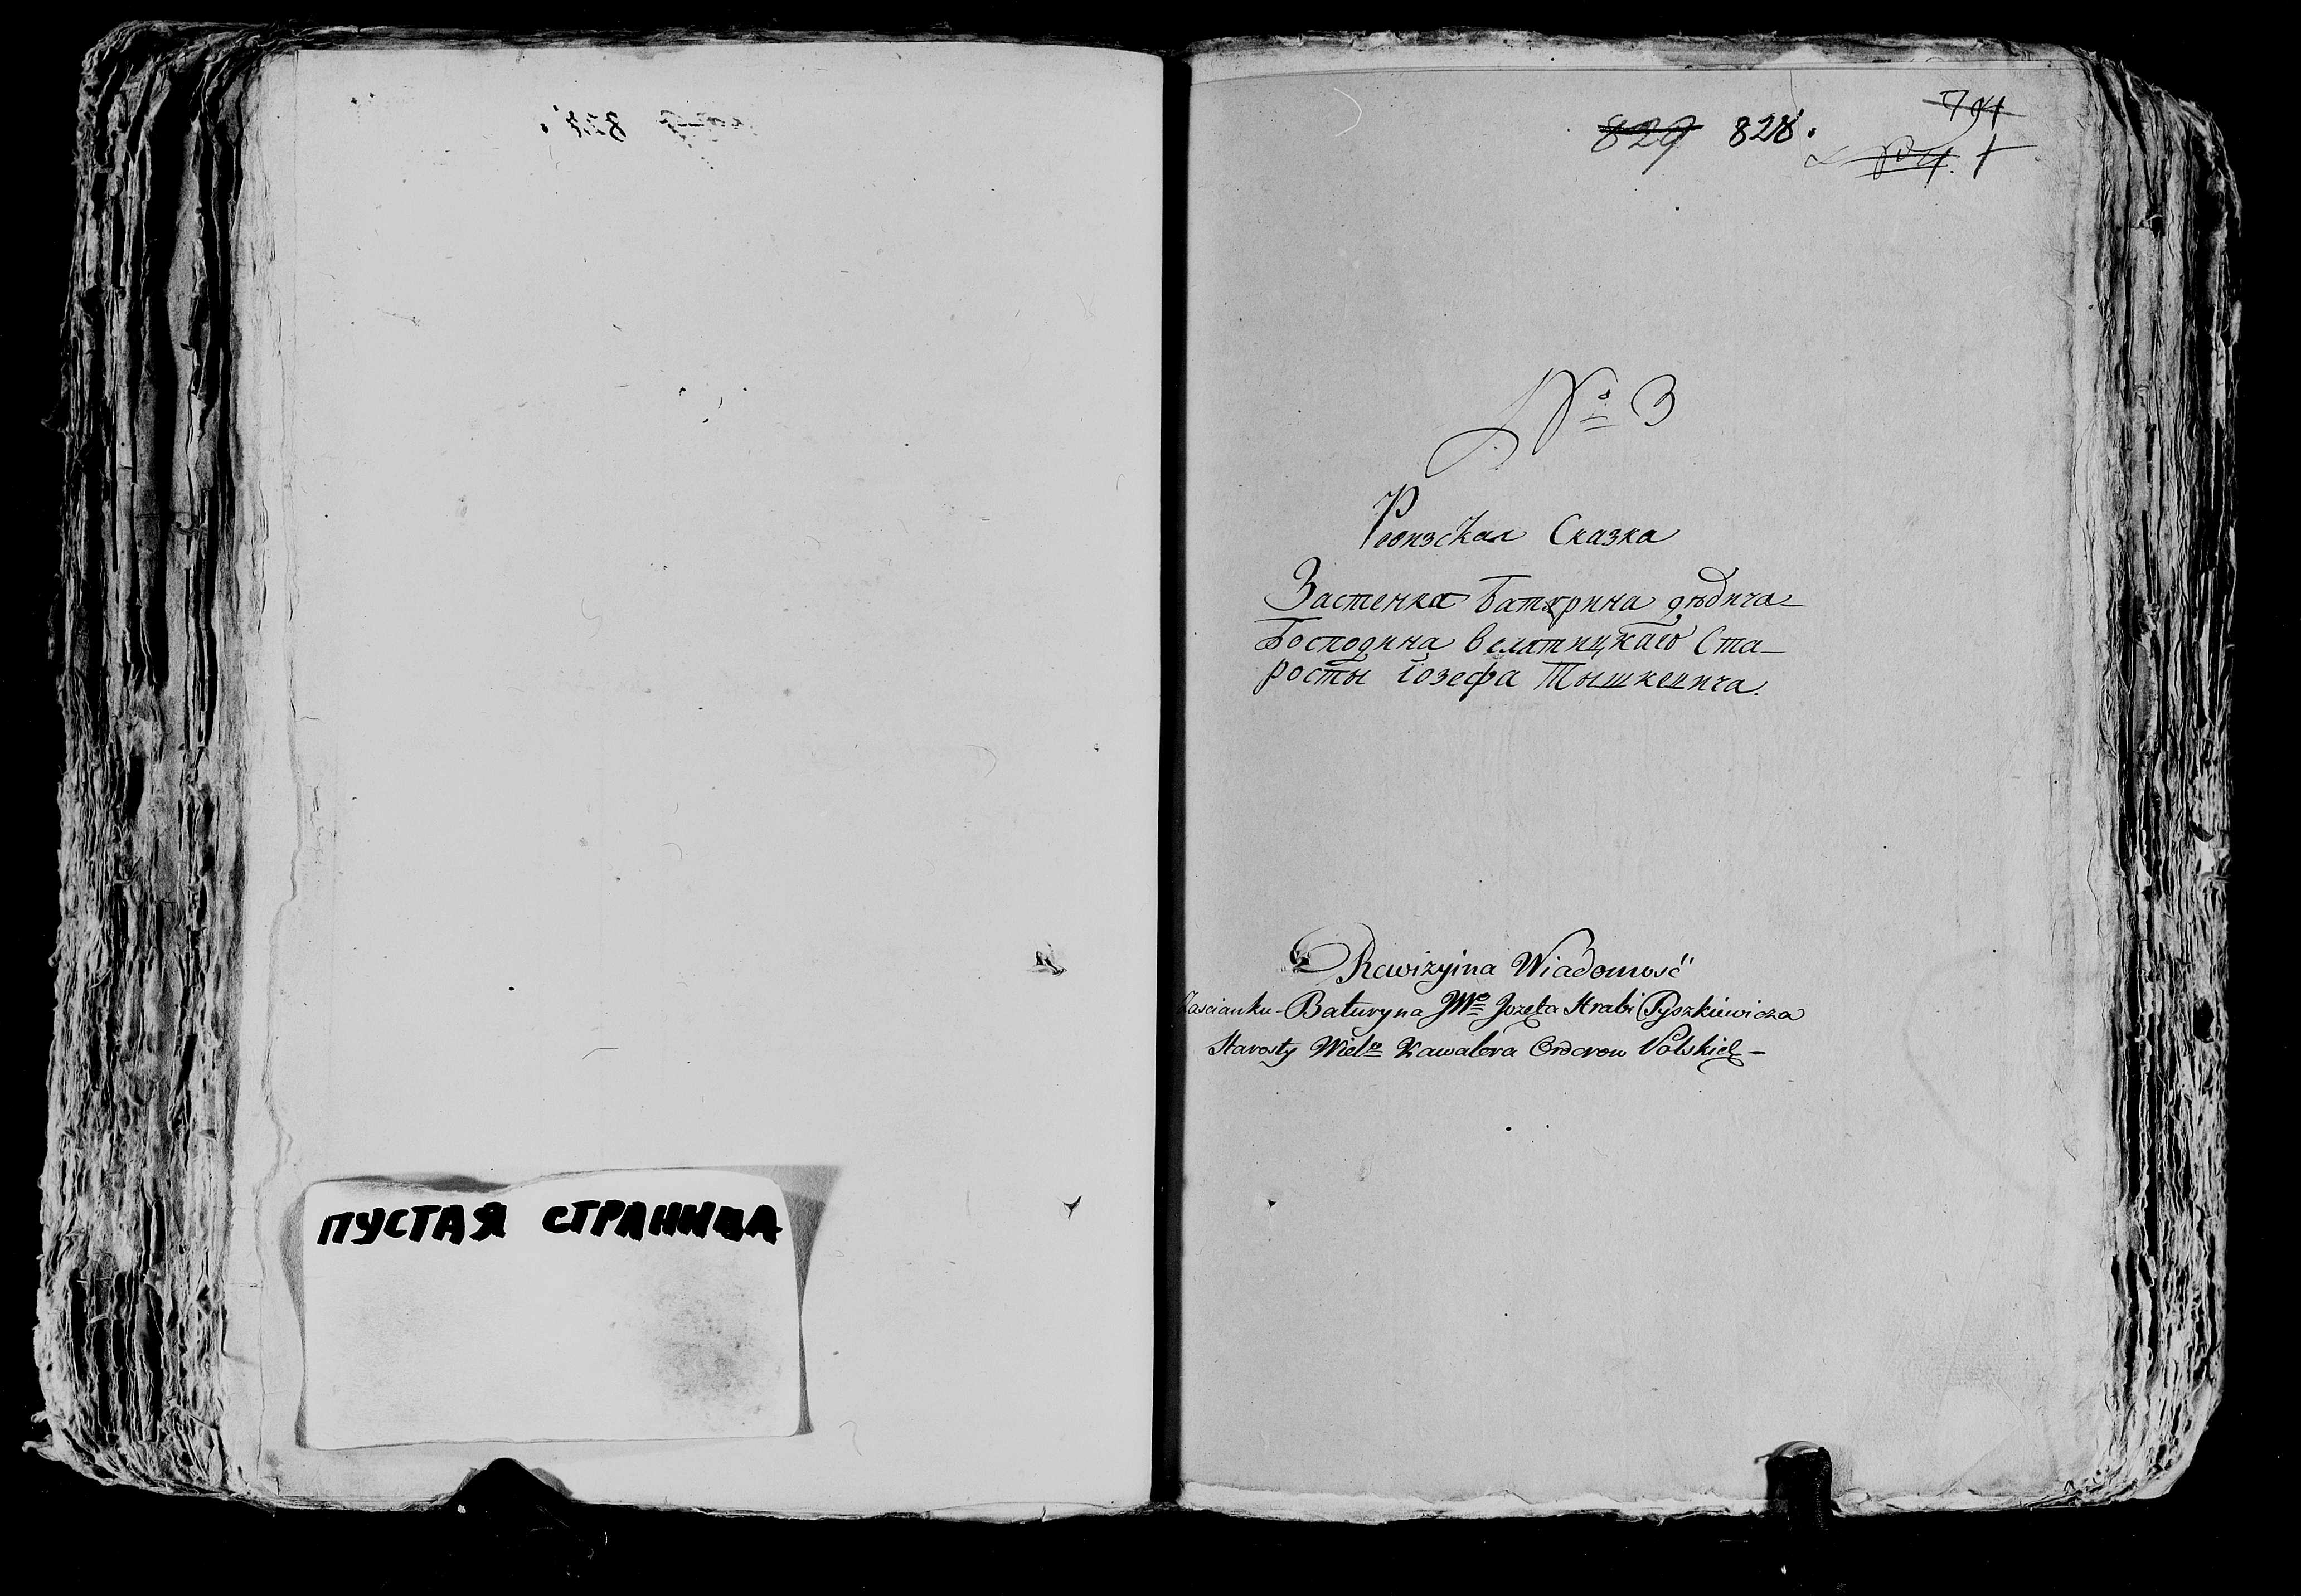 ПУСТАЯ СТРАНИЦА
829 828.
794
№ 3
Ревизская Сказка
Застенка Батурина дѣдича
Господина Велятицкаго Ста-
росты Іозефа Тышкевича.
Rewizyina Wiadomość
Zascianku Baturyna JWº Jozefa Hrabi Tyszkiewicza
Starosty Wielº Kawalera Orderow Polskich -